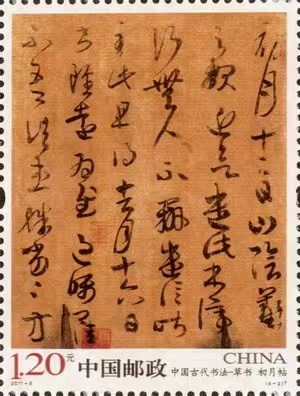 初月十二日山陰羲
之報近欲遣此書停
行無人不辨遣信昨
至此且得去月十六日
書雖遠為慰過囑卿佳
不吾諸患殊劣〻方
中国邮政
CHINA
1.20元 中国邮政 中国古代书法-草书 初月帖
2011-6 (4-2)T